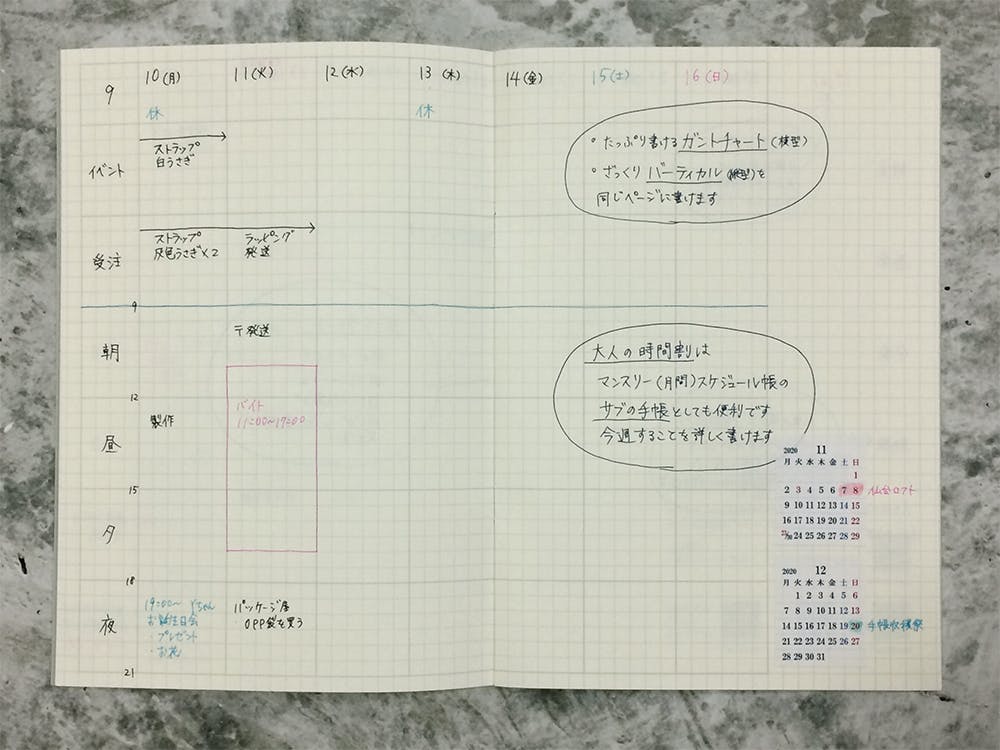 9 10(月) 11(火) 12(水) 13(木) 14(金) 15(土) 16(日)
休 休
イベント
ストラップ
白うさぎ
・たっぷり書けるガントチャート(横型)
・ざっくりバーティカル(縦型)を
同じページに書けます
受注
ストラップ
灰色うさぎ×2
ラッピング
発送
9
朝
〒発送
大人の時間割は
マンスリー(月間)スケジュール帳の
サブの手帳としても便利です
今週することを詳しく書けます
12
昼
製作
バイト
11:00〜17:00
15
夕
18
夜
19:00〜 Yちゃん
お誕生日会
・プレゼント
・お花
パッケージ屋
・OPP袋を買う
21
2020 11
月 火 水 木 金 土 日
1
2 3 4 5 6 7 8 仙台ロフト
9 10 11 12 13 14 15
16 17 18 19 20 21 22
23/30 24 25 26 27 28 29
2020 12
月 火 水 木 金 土 日
1 2 3 4 5 6
7 8 9 10 11 12 13
14 15 16 17 18 19 20 手帳収穫祭
21 22 23 24 25 26 27
28 29 30 31